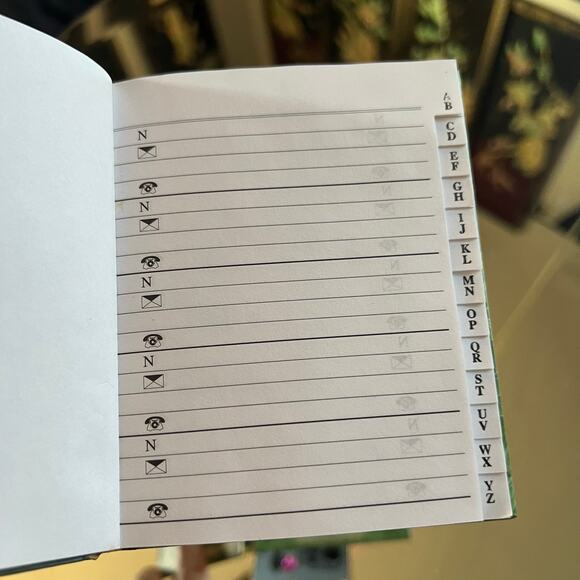 N
N
N
N
N
A
B
C
D
E
F
G
H
I
J
K
L
M
N
O
P
Q
R
S
T
U
V
W
X
Y
Z